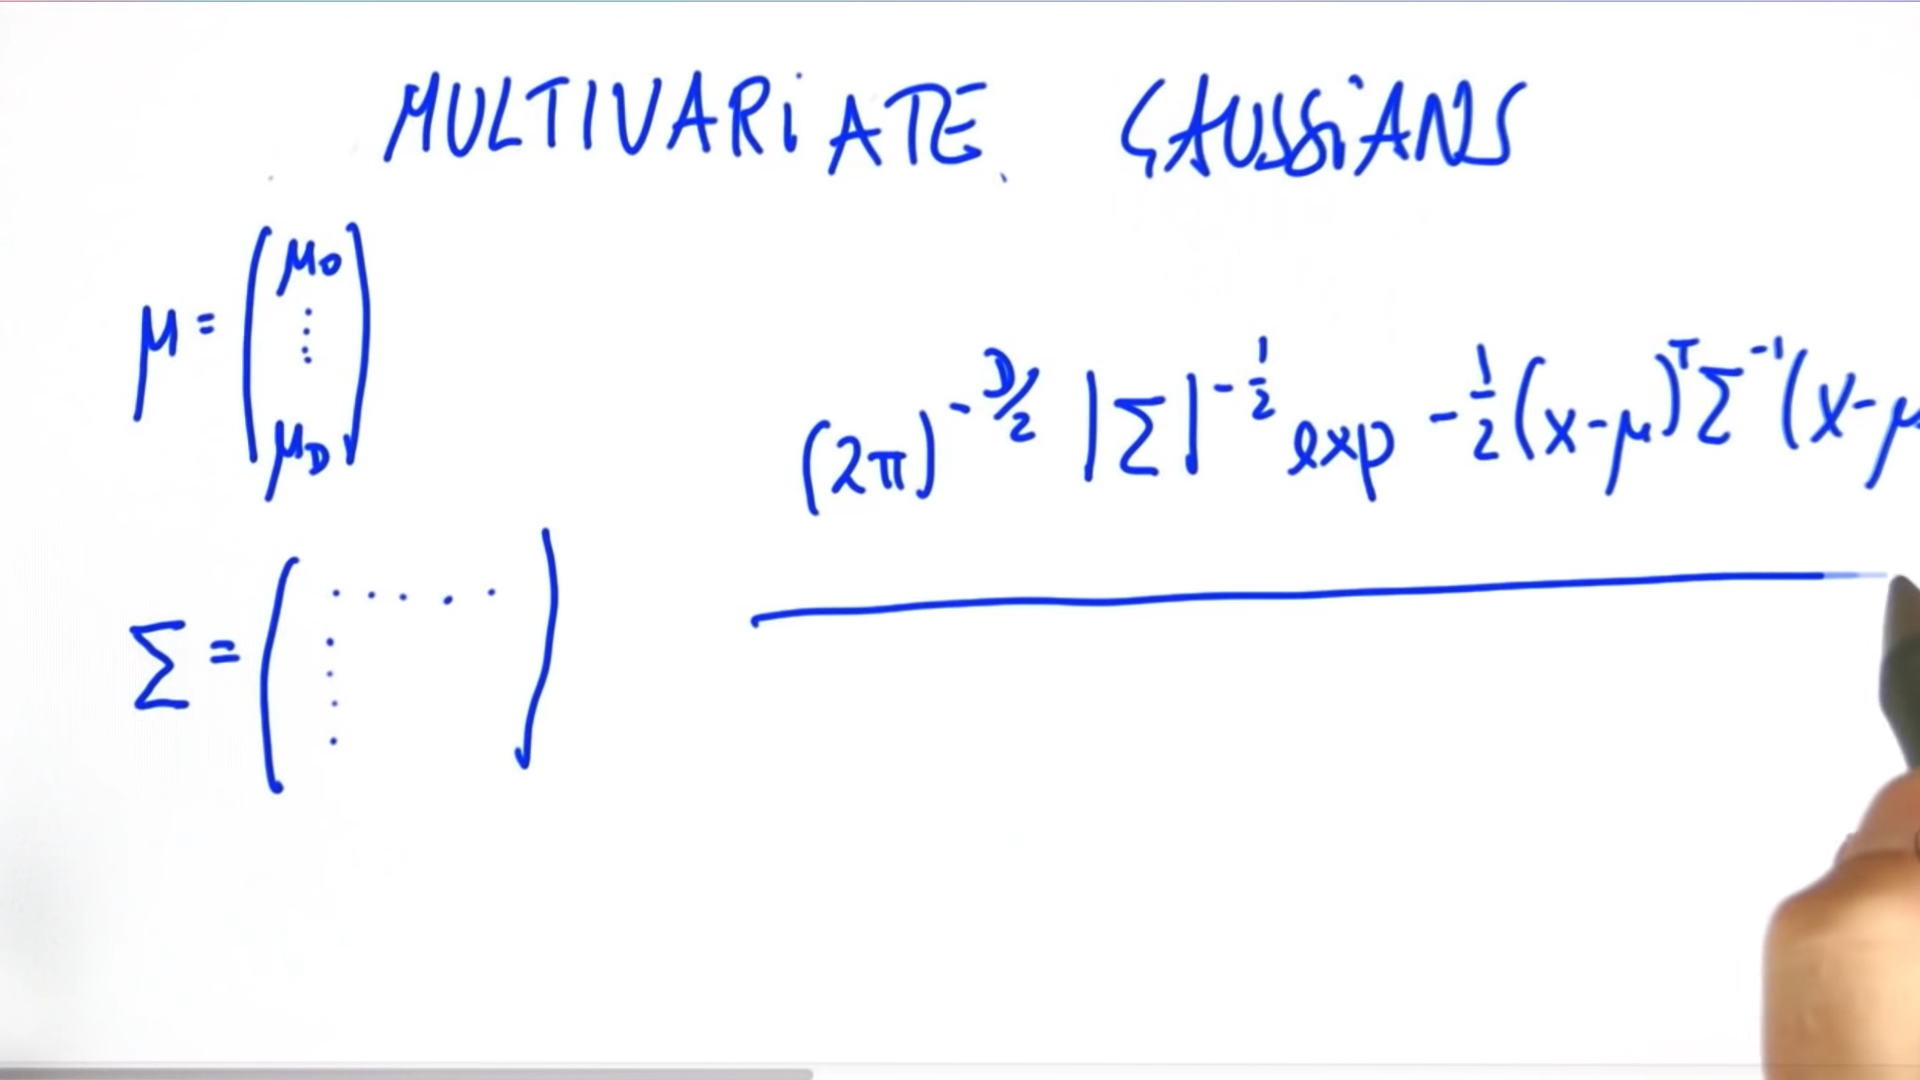 MULTIVARIATE GAUSSIANS
μ = (μ₀ ⋮ μ_D)
(2π)^(-D/2) |Σ|^(-1/2) exp -1/2 (x-μ)^T Σ^(-1) (x-μ
Σ = ( ..... ⋮ )